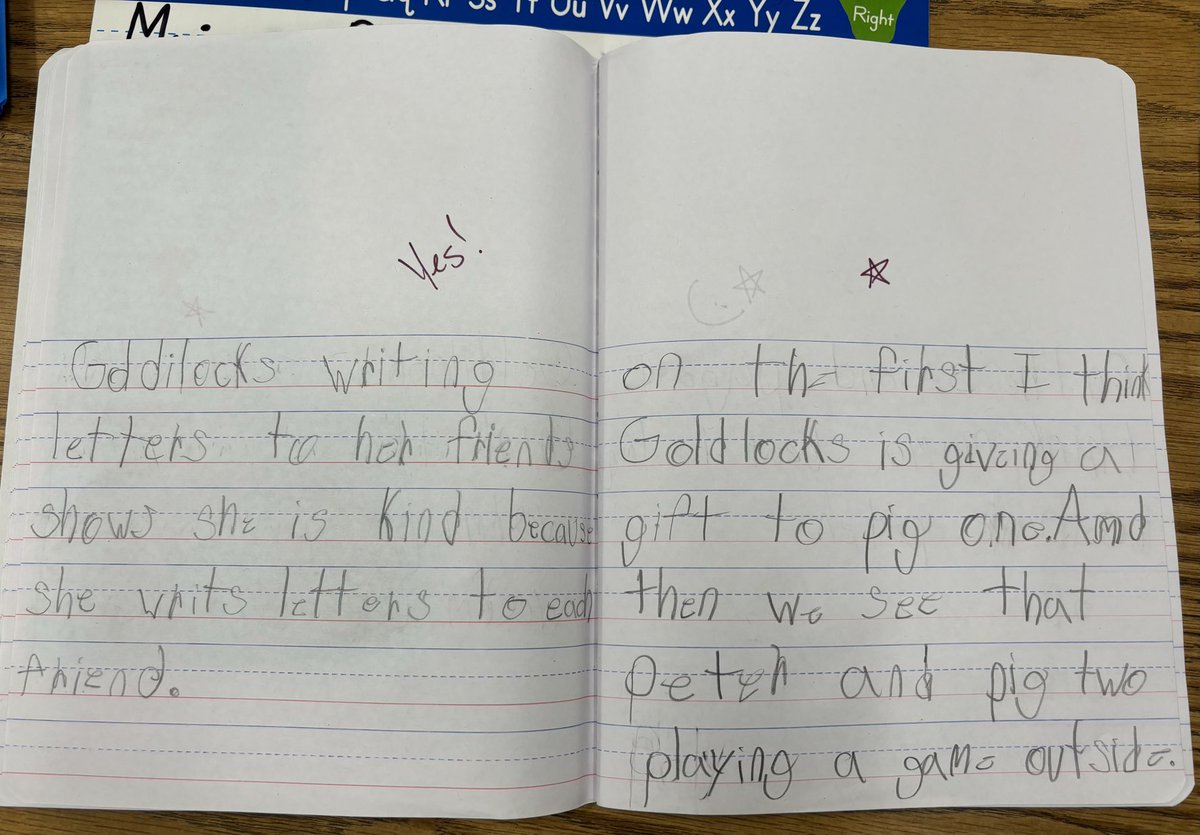 Rr Ss Tt Uu Vv Ww Xx Yy Zz
Right
M
Yes!
Goldilocks writing
letters to her friends
shows she is kind because
she writs letters to each
friend.
on the first I think
Goldlocks is giveing a
gift to pig one. And
then we see that
peter and pig two
playing a game outside.